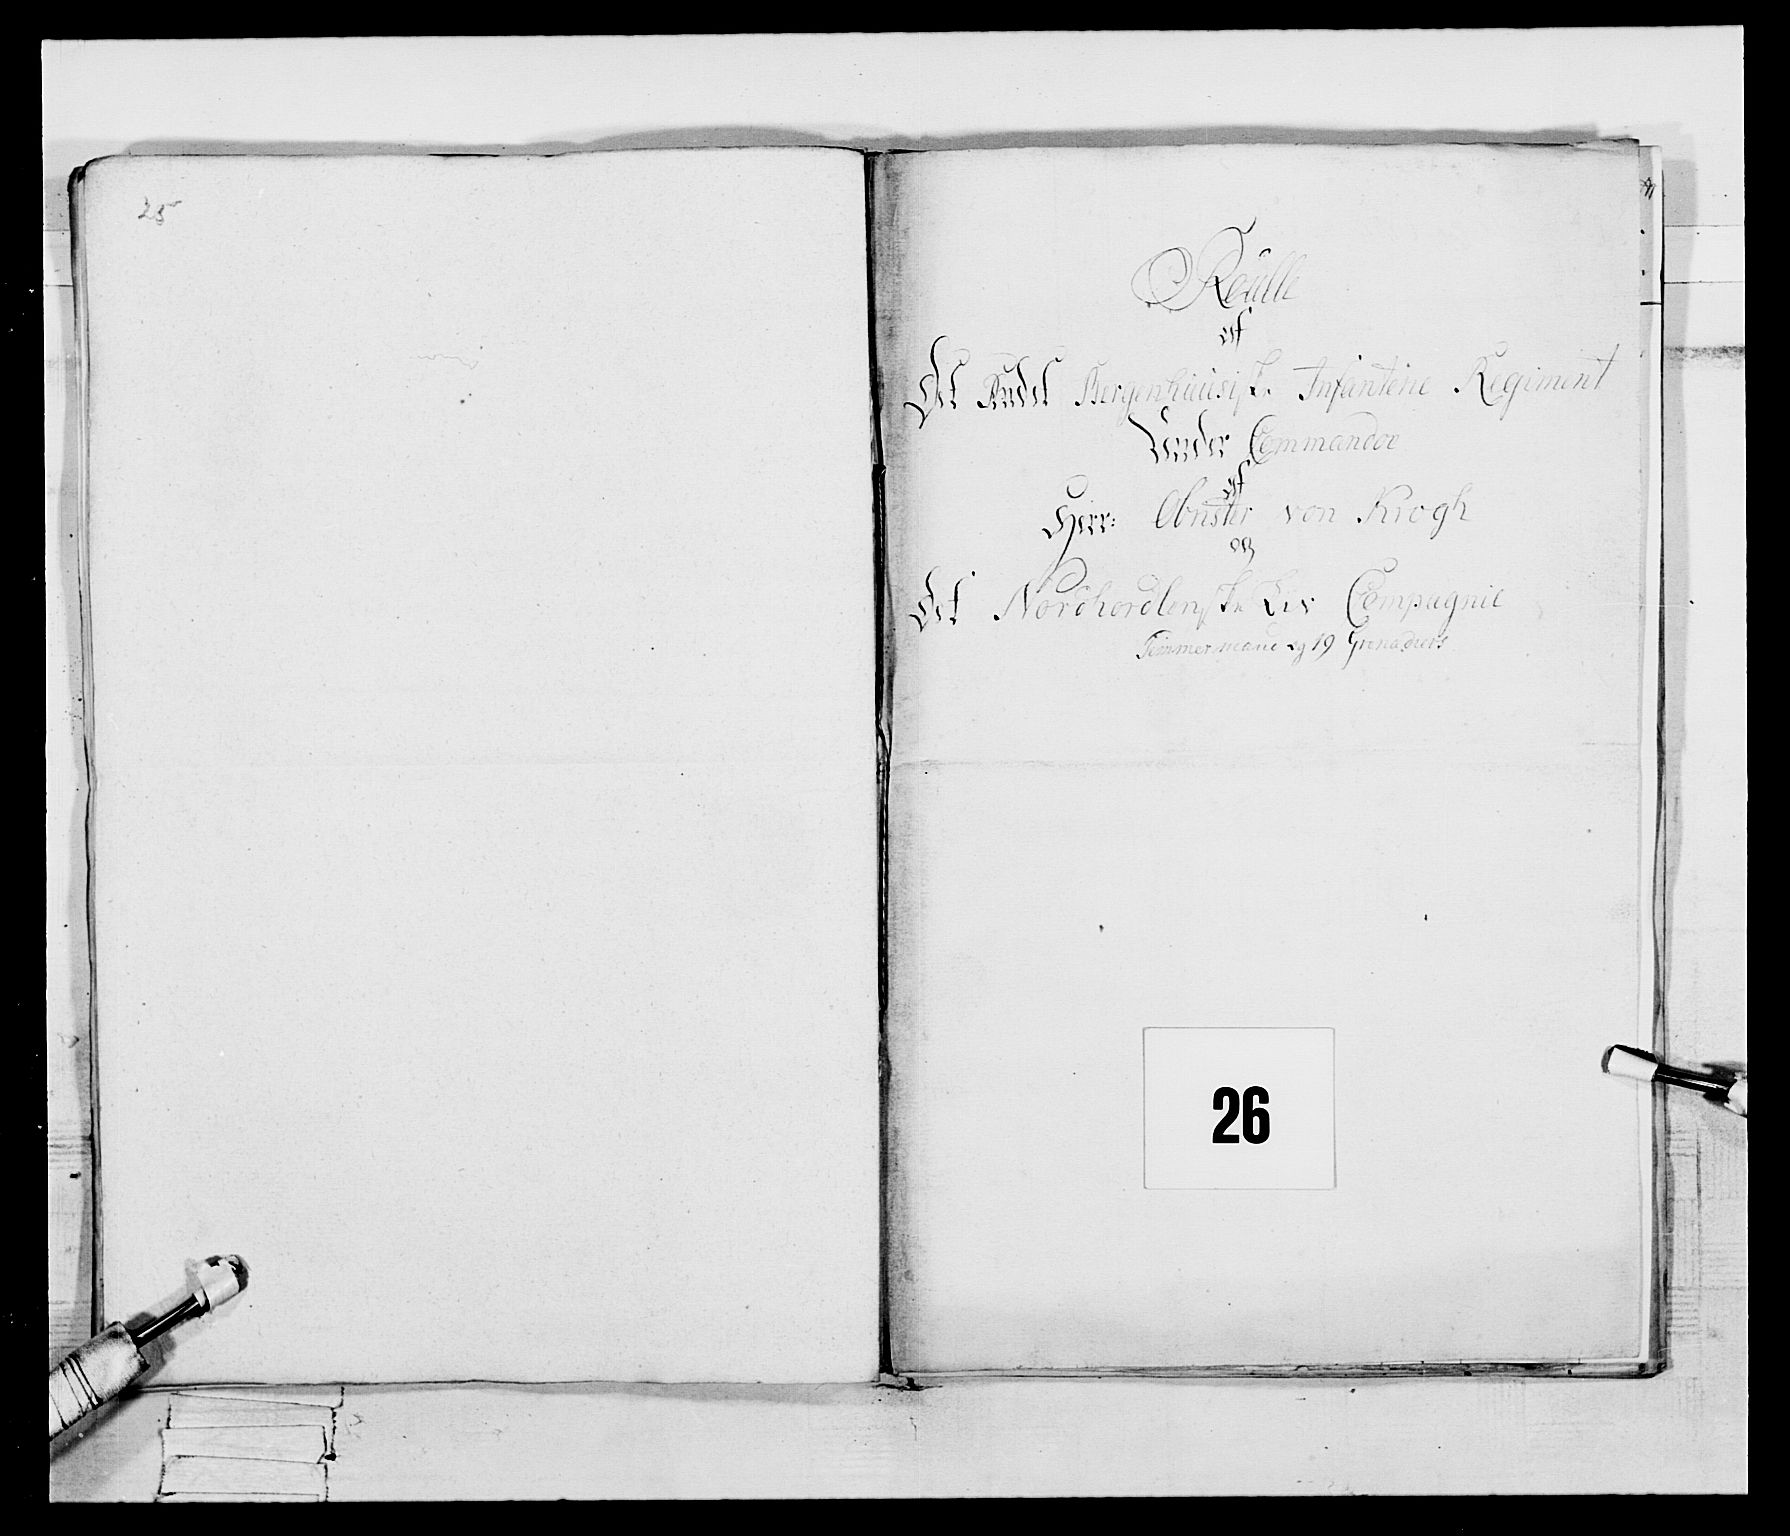 25
Roulle
af
Det Andet Bergenhuusiske Infanterie Regiment
Under Commandoe
af
Herr: Obrister von Krogh
og
Det Nordhordlenske Liv Compagnie
Timmermand og 19 Grenadiers
26